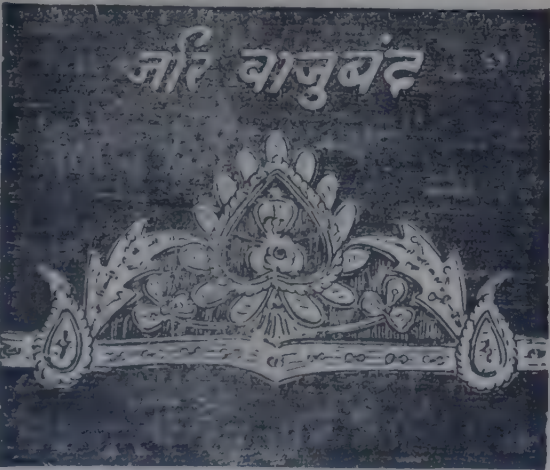 जरि वाजुबंद